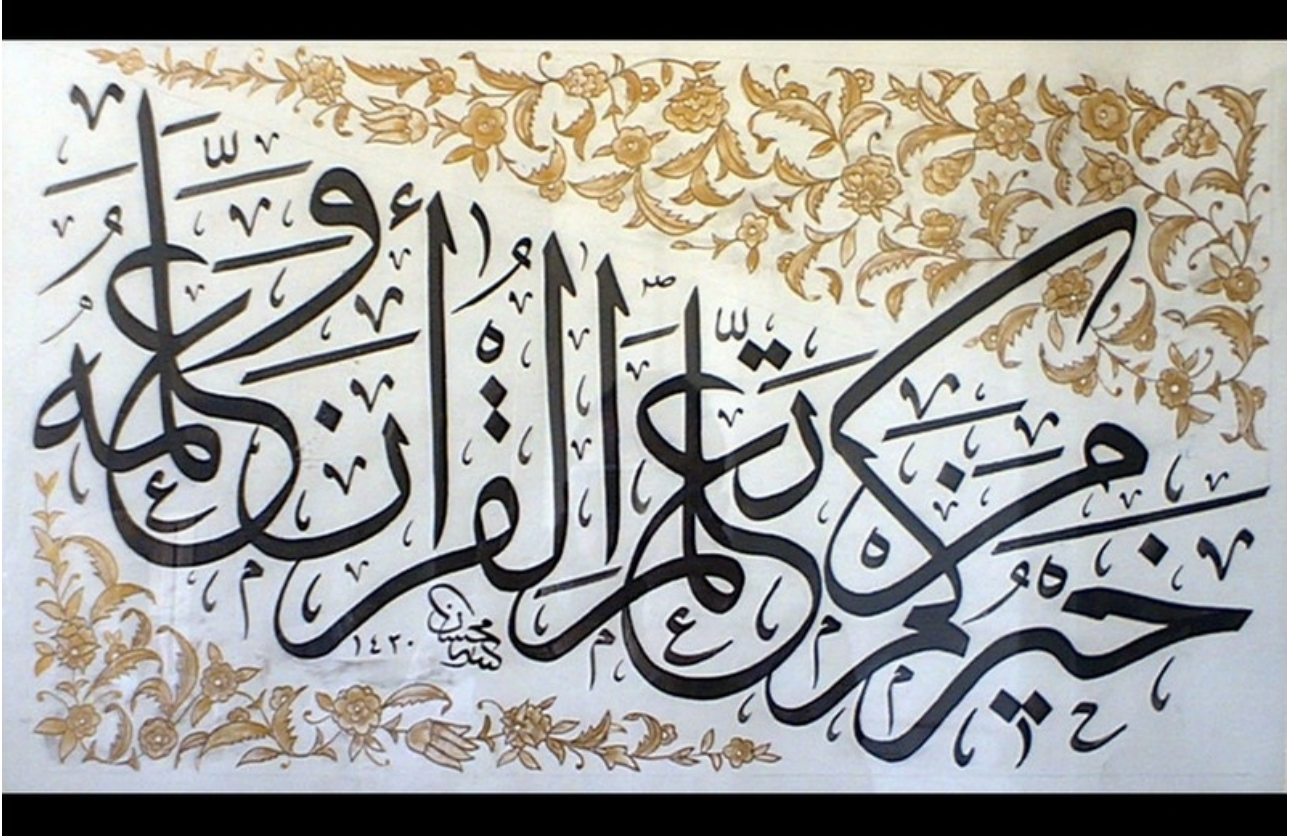 خَيْرُكُمْ مَنْ تَعَلَّمَ الْقُرْآنَ وَعَلَّمَهُ
١٤٢٠